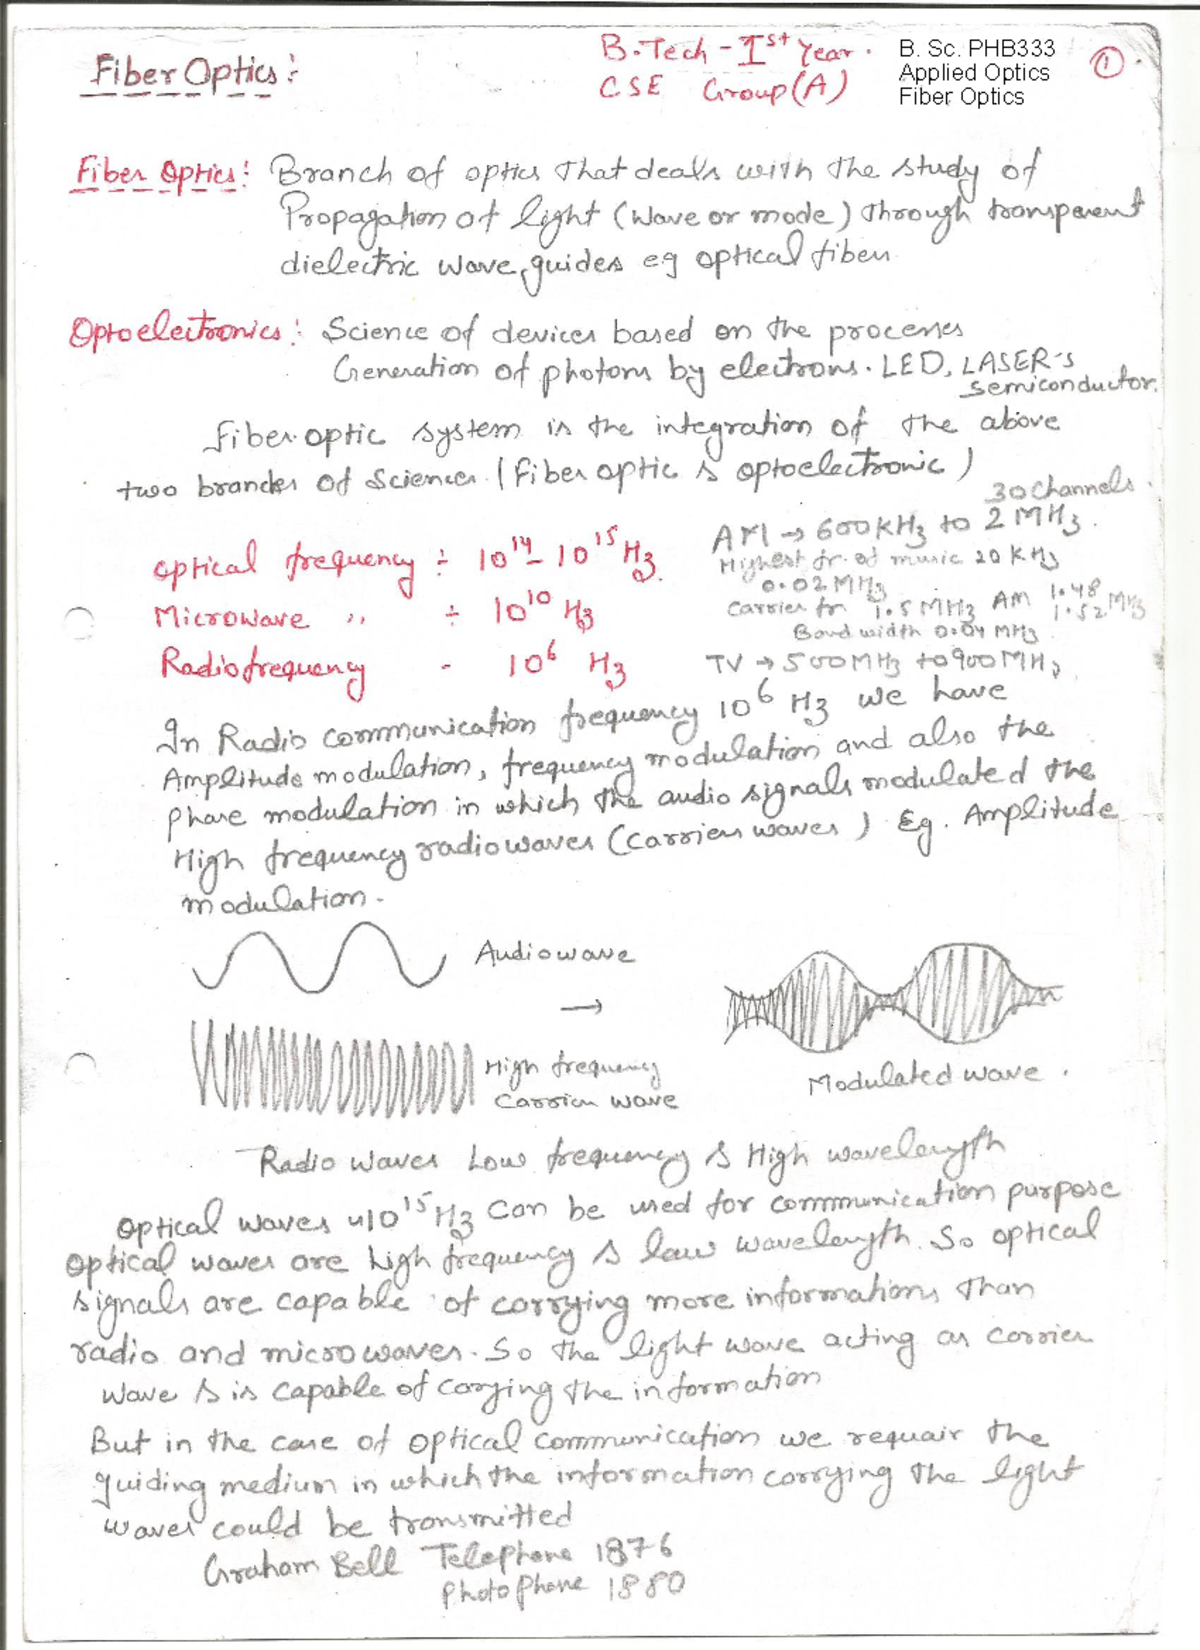 Fiber Optics:
B.Tech - Ist Year.
CSE Group(A)
B. Sc. PHB333
Applied Optics
Fiber Optics
1
Fiber Optics: Branch of optics that deals with the study of
Propagation of light (wave or mode) through transparent
dielectric wave guides eg optical fiber
Optoelectronics: Science of devices based on the processes
Generation of photons by electrons. LED, LASER's
semiconductor.
Fiber optic system is the integration of the above
two branches of Sciences (Fiber optic & optoelectronic)
Optical frequency ÷ 10^14 - 10^15 Hz.
Microwave ,, ÷ 10^10 Hz
Radiofrequency - 10^6 Hz
30 Channels.
AM → 600KHz to 2MHz.
Highest fr. of music 20 KHz
0.02 MHz
Carrier fr 1.5 MHz AM 1.48
1.52 MHz
Band width 0.04 MHz
TV → 500MHz to 900MHz
In Radio communication frequency 10^6 Hz we have
Amplitude modulation, frequency modulation and also the
phase modulation in which the audio signals modulated the
High frequency radiowaves (carrier waves) Eg. Amplitude
modulation.
Audiowave
→
High frequency
Carrier wave
Modulated wave.
Radio waves Low frequency & High wavelength
Optical waves ~10^15 Hz can be used for communication purpose
Optical waves are high frequency & low wavelength. So optical
signals are capable of carrying more informations than
radio and microwaves. So the light wave acting as carrier
wave & is capable of carying the information
But in the case of optical communication we requair the
guiding medium in which the information carrying the light
waves could be transmitted
Graham Bell Telephone 1876
Photo Phone 1880